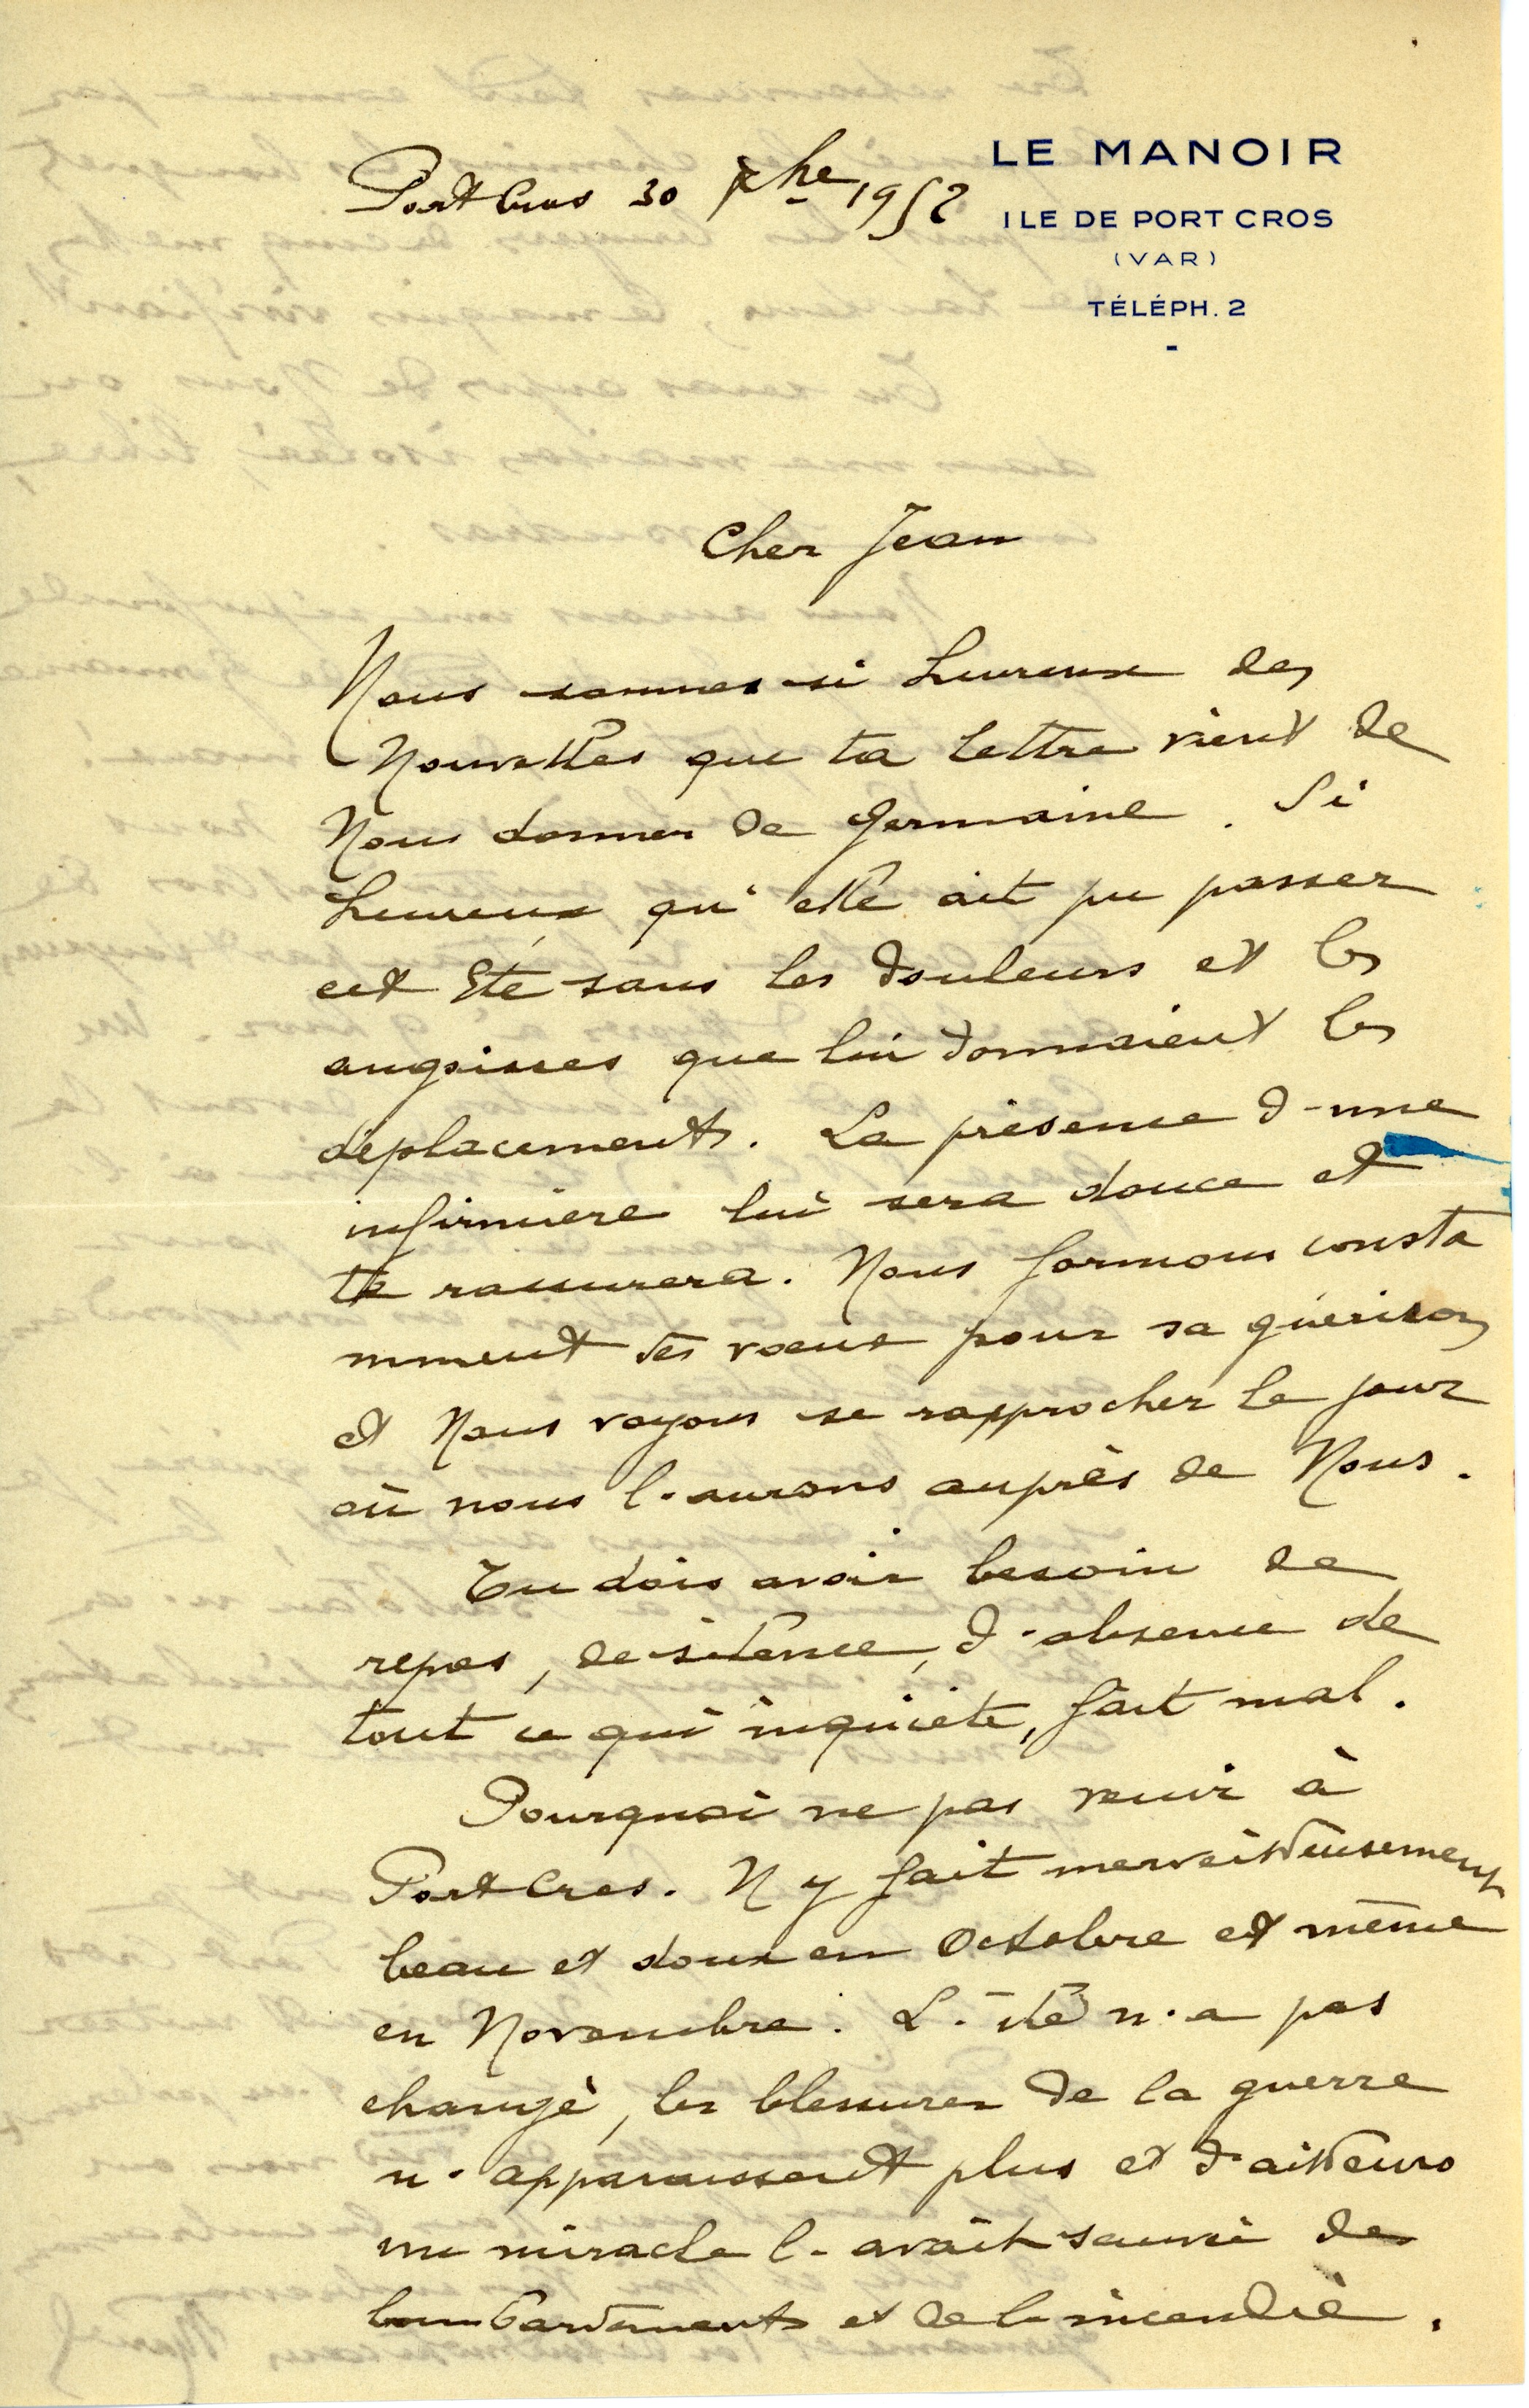 LE MANOIR
ILE DE PORT CROS
(VAR)
TÉLÉPH. 2
Port Cros 30 1952
Cher Jean
Nous sommes si heureux des
Nouvelles que ta lettre vient de
Nous donner de Germaine. Si
heureux qu'elle ait pu passer
cet Eté sans les douleurs et les
angoisses que lui donnaient les
déplacements. La présence d'une
infirmière lui sera douce et
te rassurera. Nous formons consta
mment des voeux pour sa guérison
et Nous voyons se rapprocher le jour
où nous l'aurons auprès de Nous.
Tu dois avoir besoin de
repos, de silence, d'absence de
tout ce qui inquiète, fait mal.
Pourquoi ne pas venir à
Port Cros. Il y fait merveilleusement
beau et doux en Octobre et même
en Novembre. L'île n'a pas
changé, les blessures de la guerre
n'apparaissent plus et d'ailleurs
un miracle l'avait sauvé des
bombardements et de l'incendie.